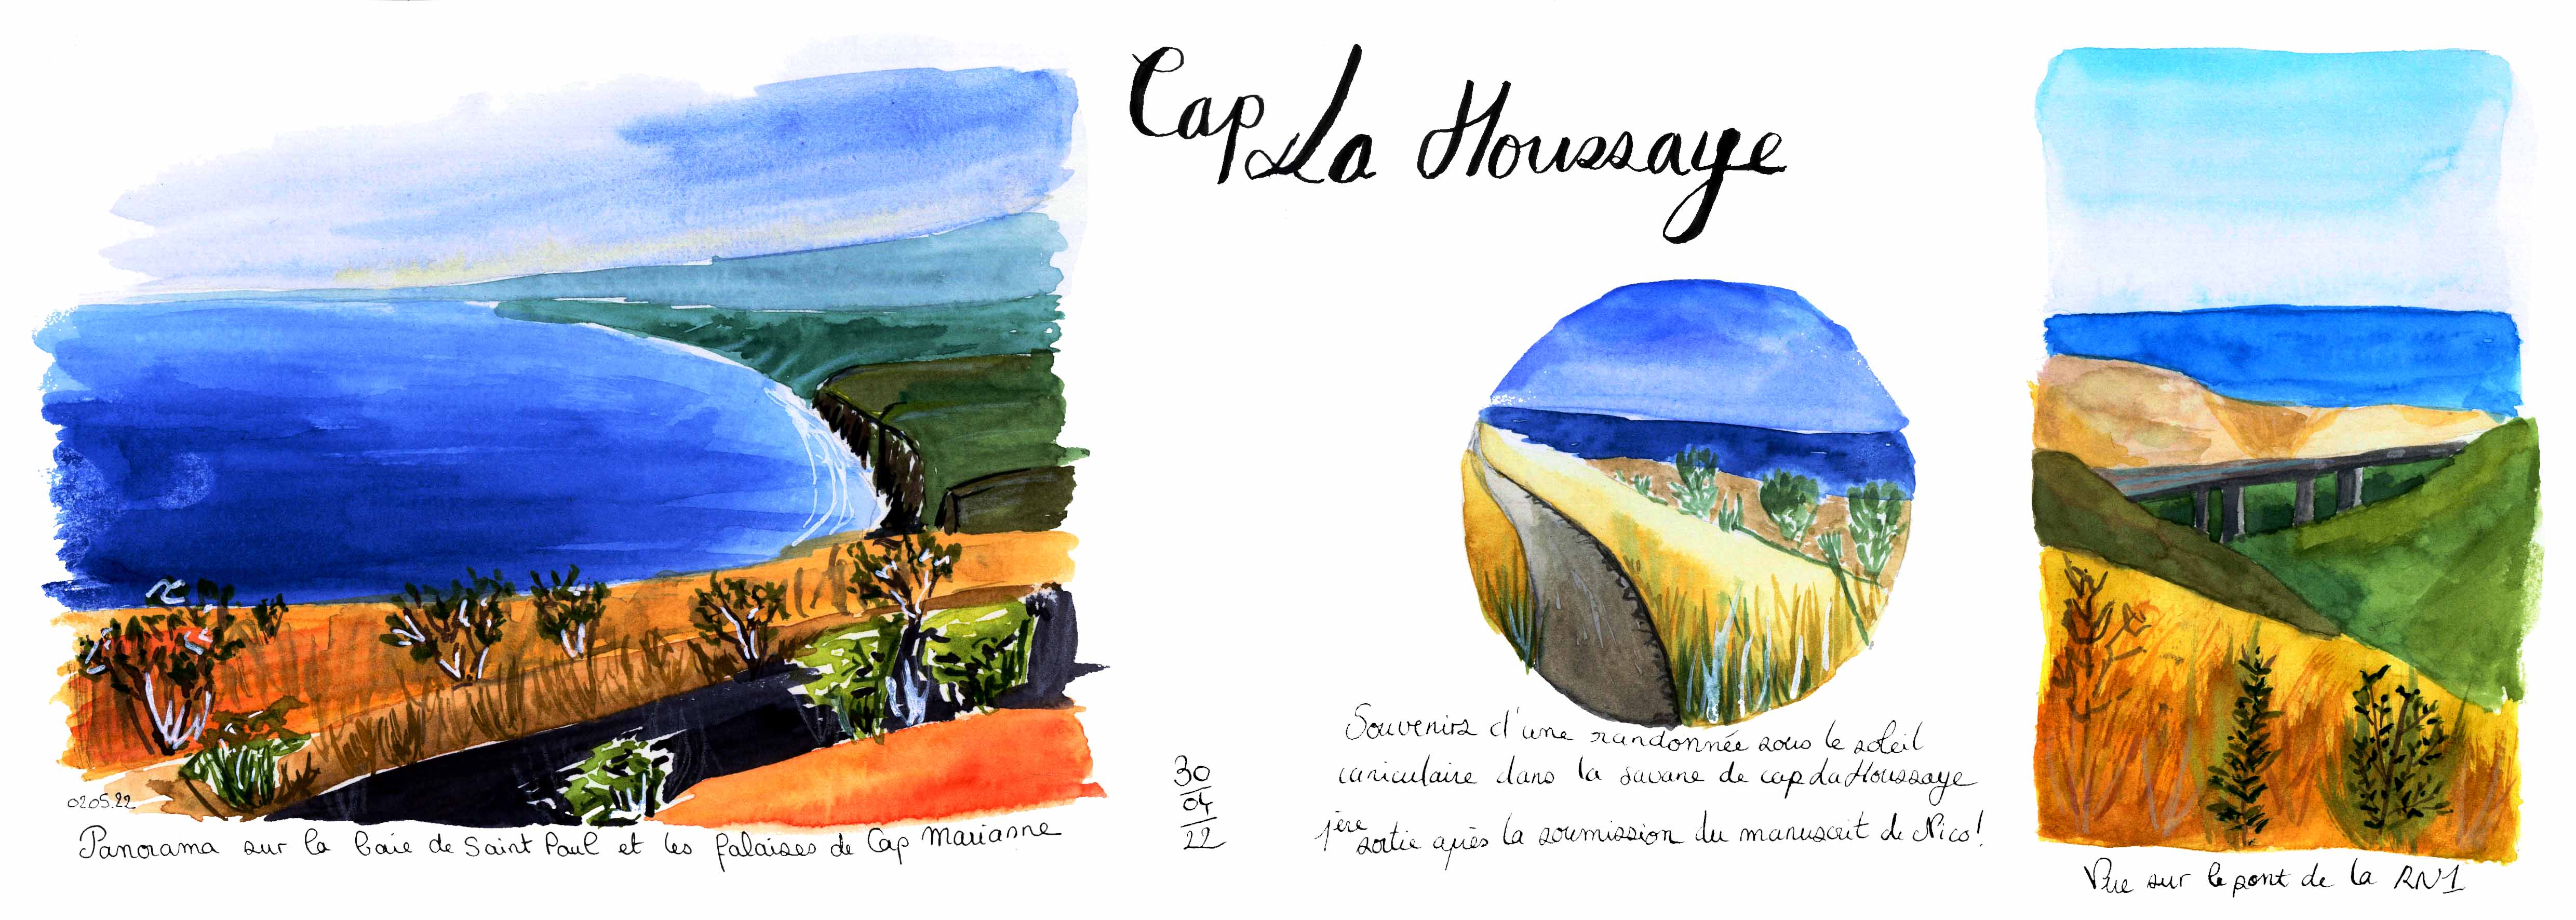 Cap La Houssaye
0205.22
Panorama sur la baie de Saint Paul et les falaises de Cap Marianne
30
04
22
Souvenirs d'une randonnée sous le soleil
caniculaire dans la savane de cap La Houssaye
1ère sortie après la soumission du manuscrit de Nico!
Vue sur le pont de la RN1